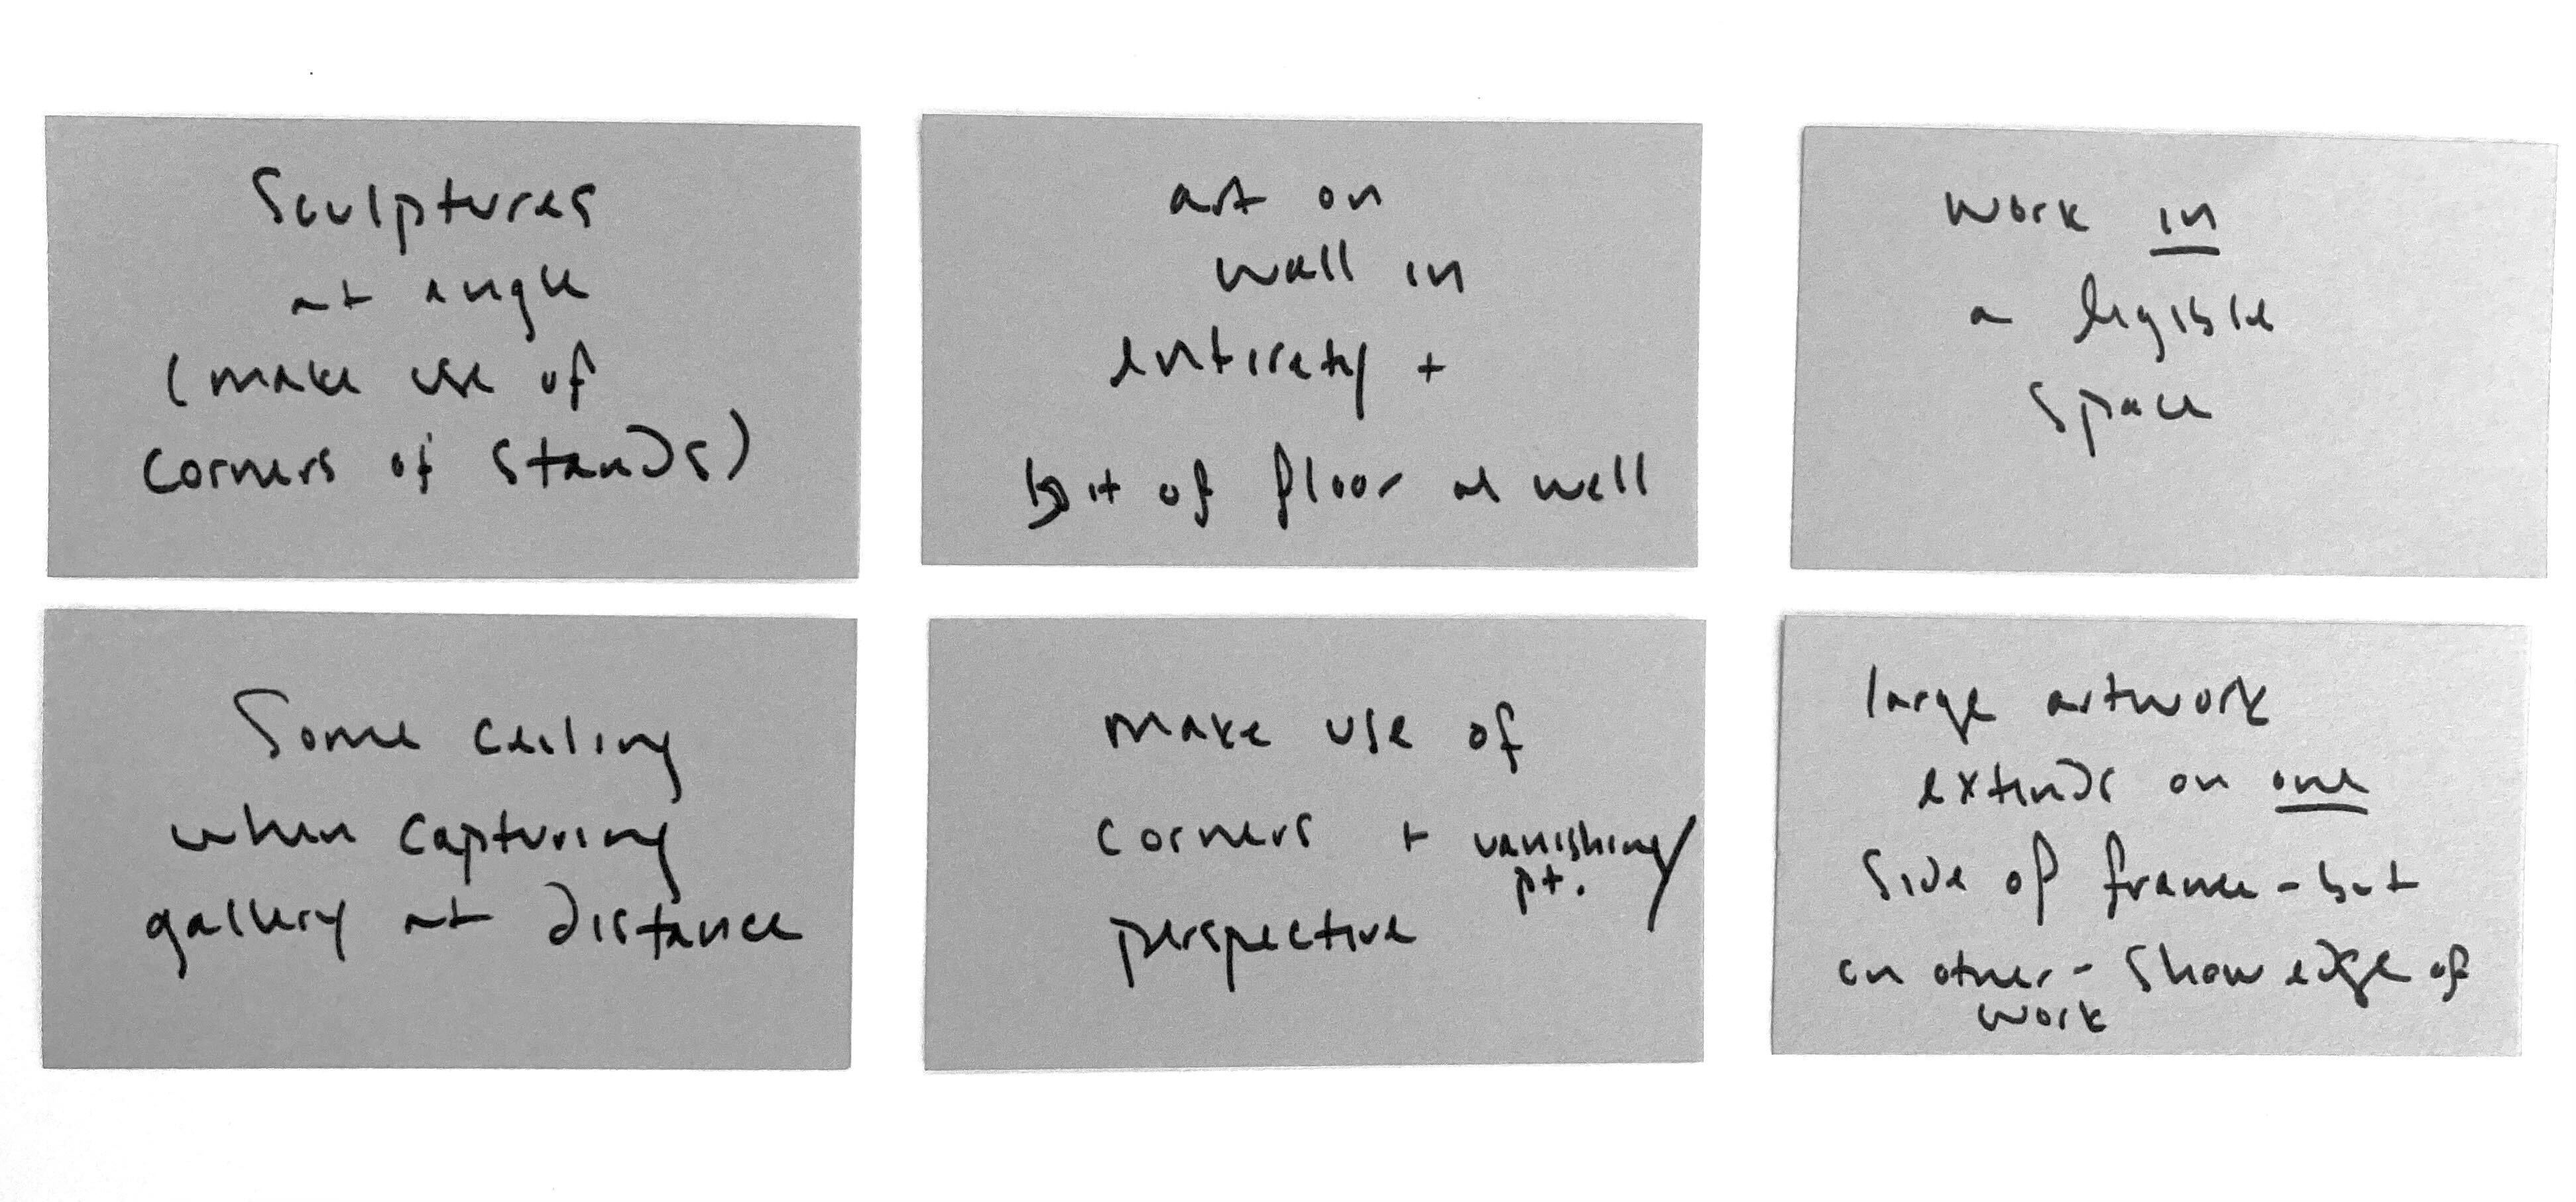 Sculptures
at angle
(make use of
corners of stands)
art on
wall in
entirety +
bit of floor as well
work in
a legible
space
Some ceiling
when capturing
gallery at distance
make use of
corners + vanishing
pt.
perspective
large artwork
extends on one
side of frame - but
on other - show edge of
work